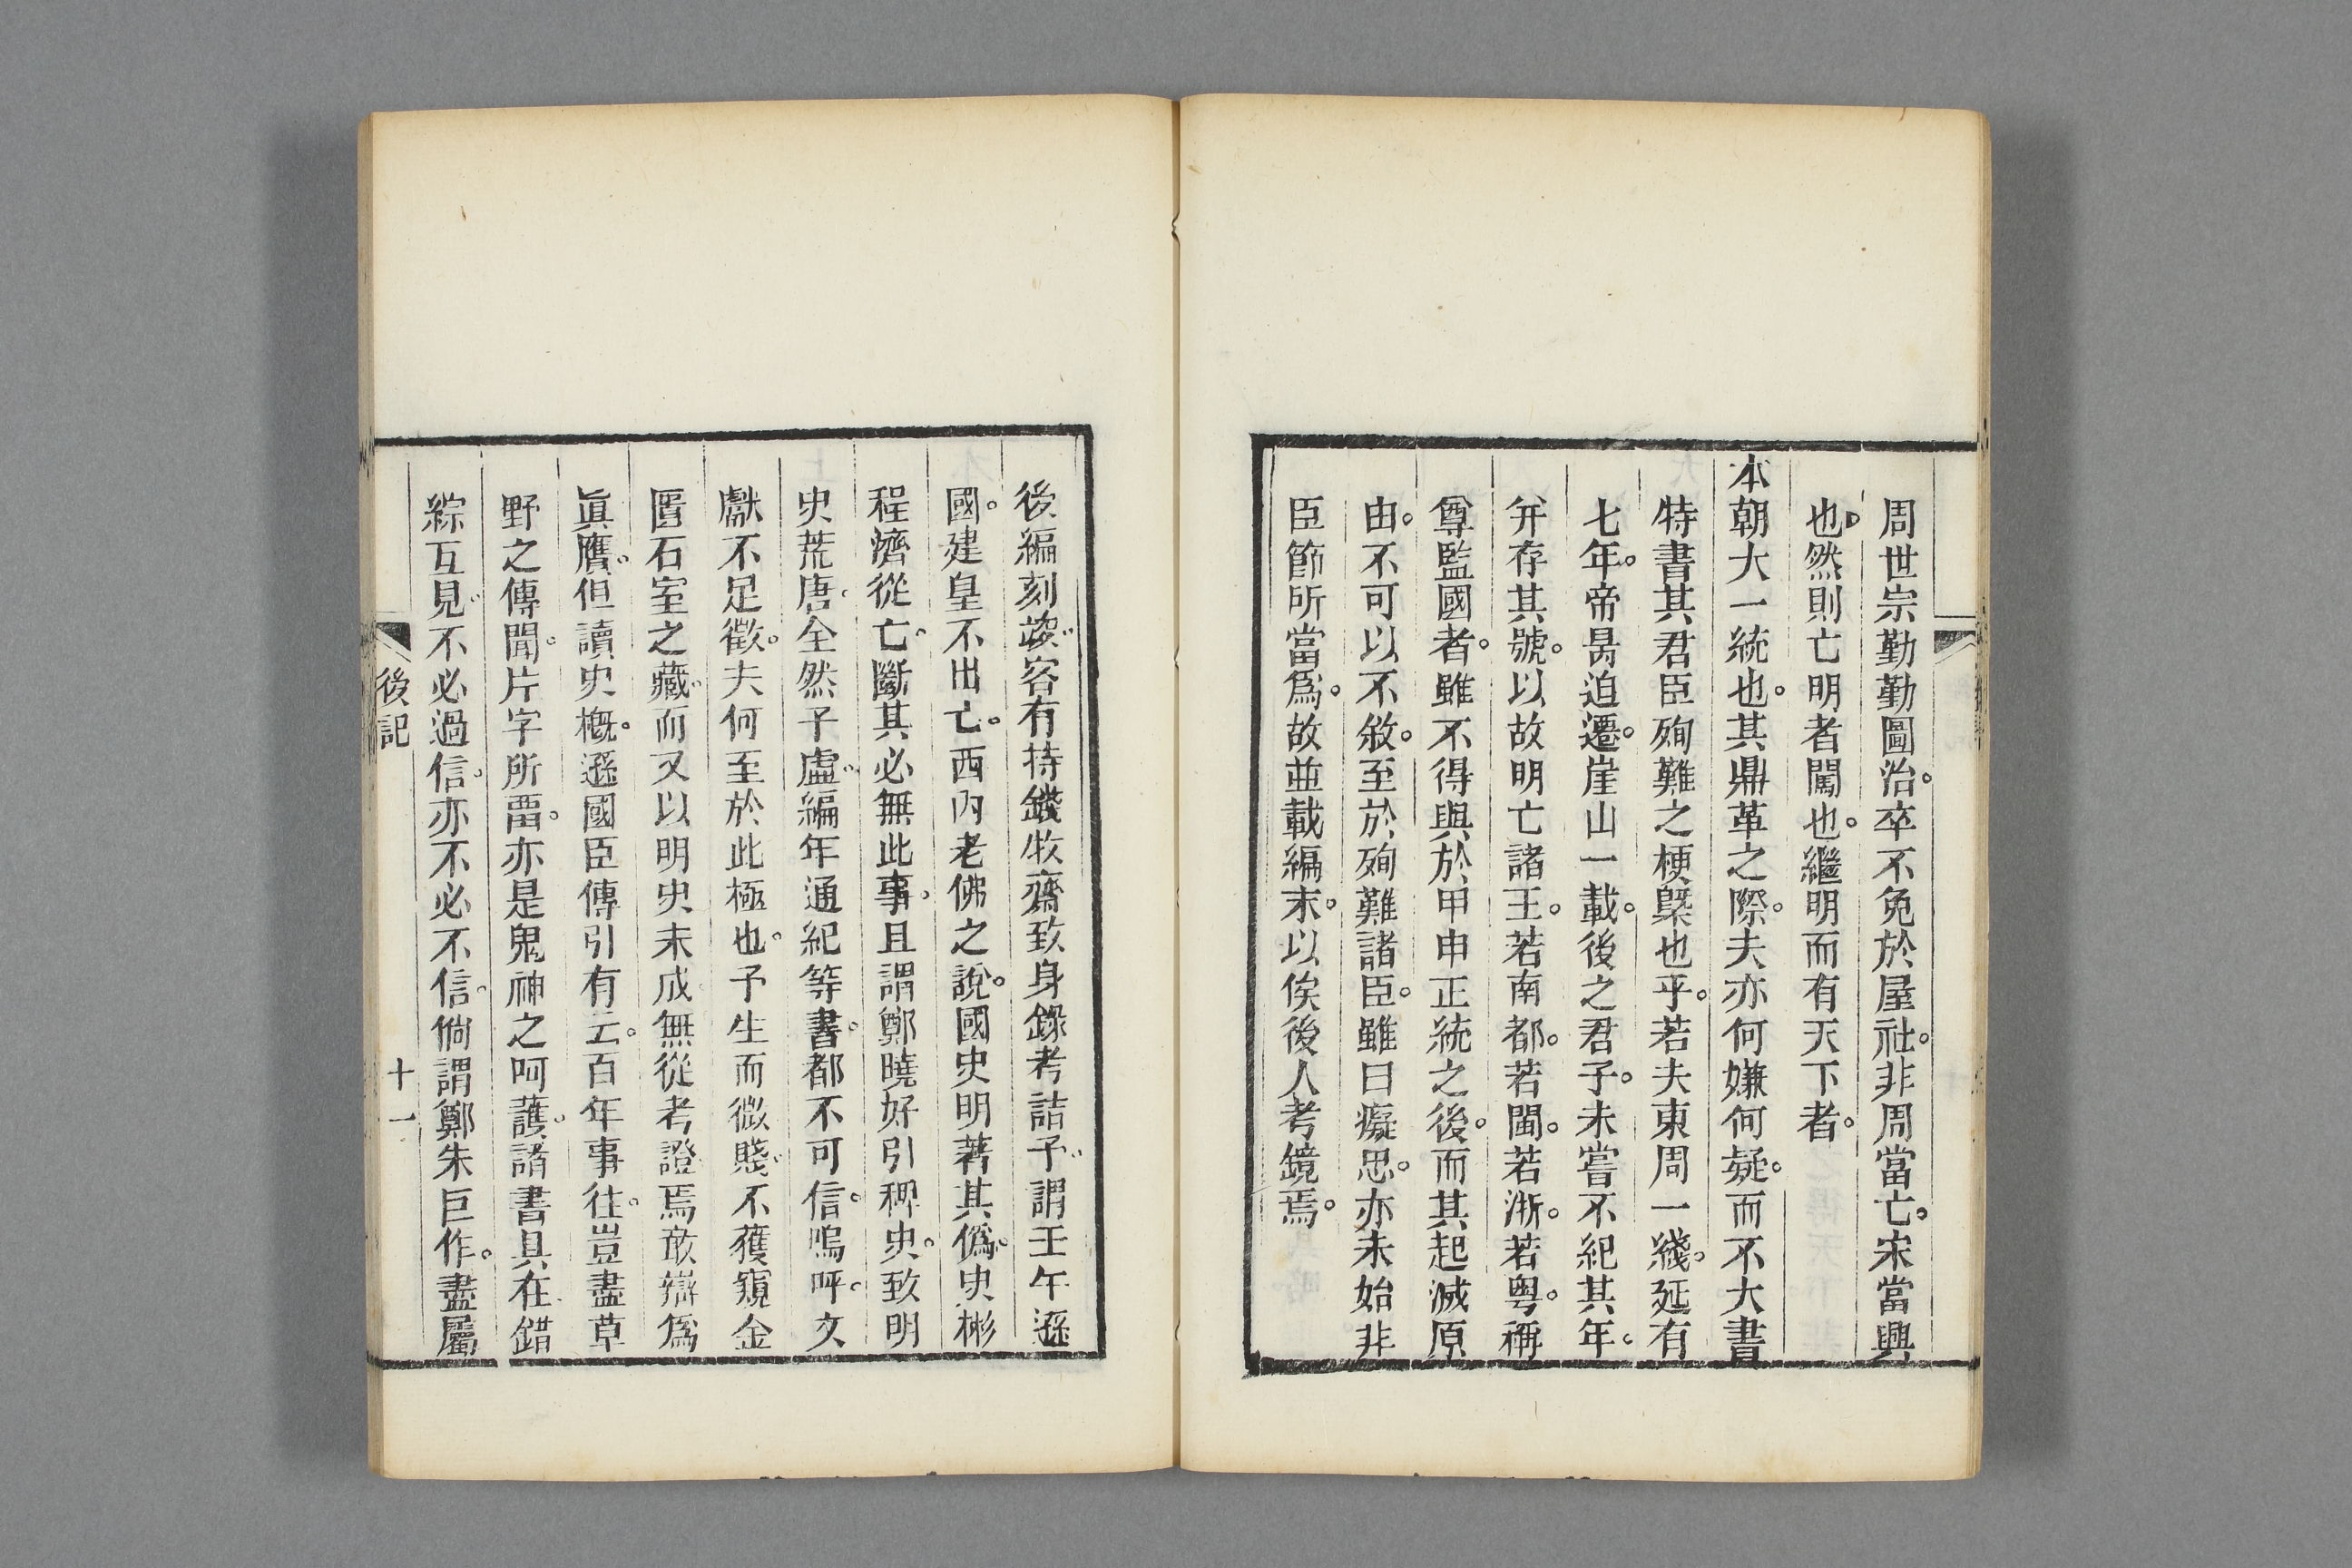 周世宗勤勤圖治。卒不免於屋社。非周當亡。宋當興
也。然則亡明者闖也。繼明而有天下者。
本朝大一統也。其鼎革之際。夫亦何嫌何疑。而不大書
特書其君臣殉難之梗槩也乎。若夫東周一綫。延有
七年。帝昺迫遷。崖山一載。後之君子。未嘗不紀其年。
并存其號。以故明亡諸王。若南都。若閩。若浙。若粵。稱
尊監國者。雖不得與於甲申正統之後。而其起滅原
由。不可以不敘。至於殉難諸臣。雖曰癡忠。亦未始非
臣節所當爲。故並載編末。以俟後人考鏡焉。
後編刻竣。客有持錢牧齋致身錄考詰予。謂壬午遜
國。建皇不出亡。西內老佛之說。國史明著其僞。史彬
程濟從亡。斷其必無此事。且謂鄭曉好引稗史。致明
史荒唐。全然子虛。編年通紀等書。都不可信。嗚呼。文
獻不足徵。夫何至於此極也。予生而微賤。不獲窺金
匱石室之藏。而又以明史未成。無從考證。焉敢辯爲
眞贋。但讀史槪。遜國臣傳引有云。百年事往。豈盡草
野之傳聞。片字所畱。亦是鬼神之呵護。諸書具在。錯
綜互見。不必過信。亦不必不信。倘謂鄭朱巨作。盡屬
後記
十一